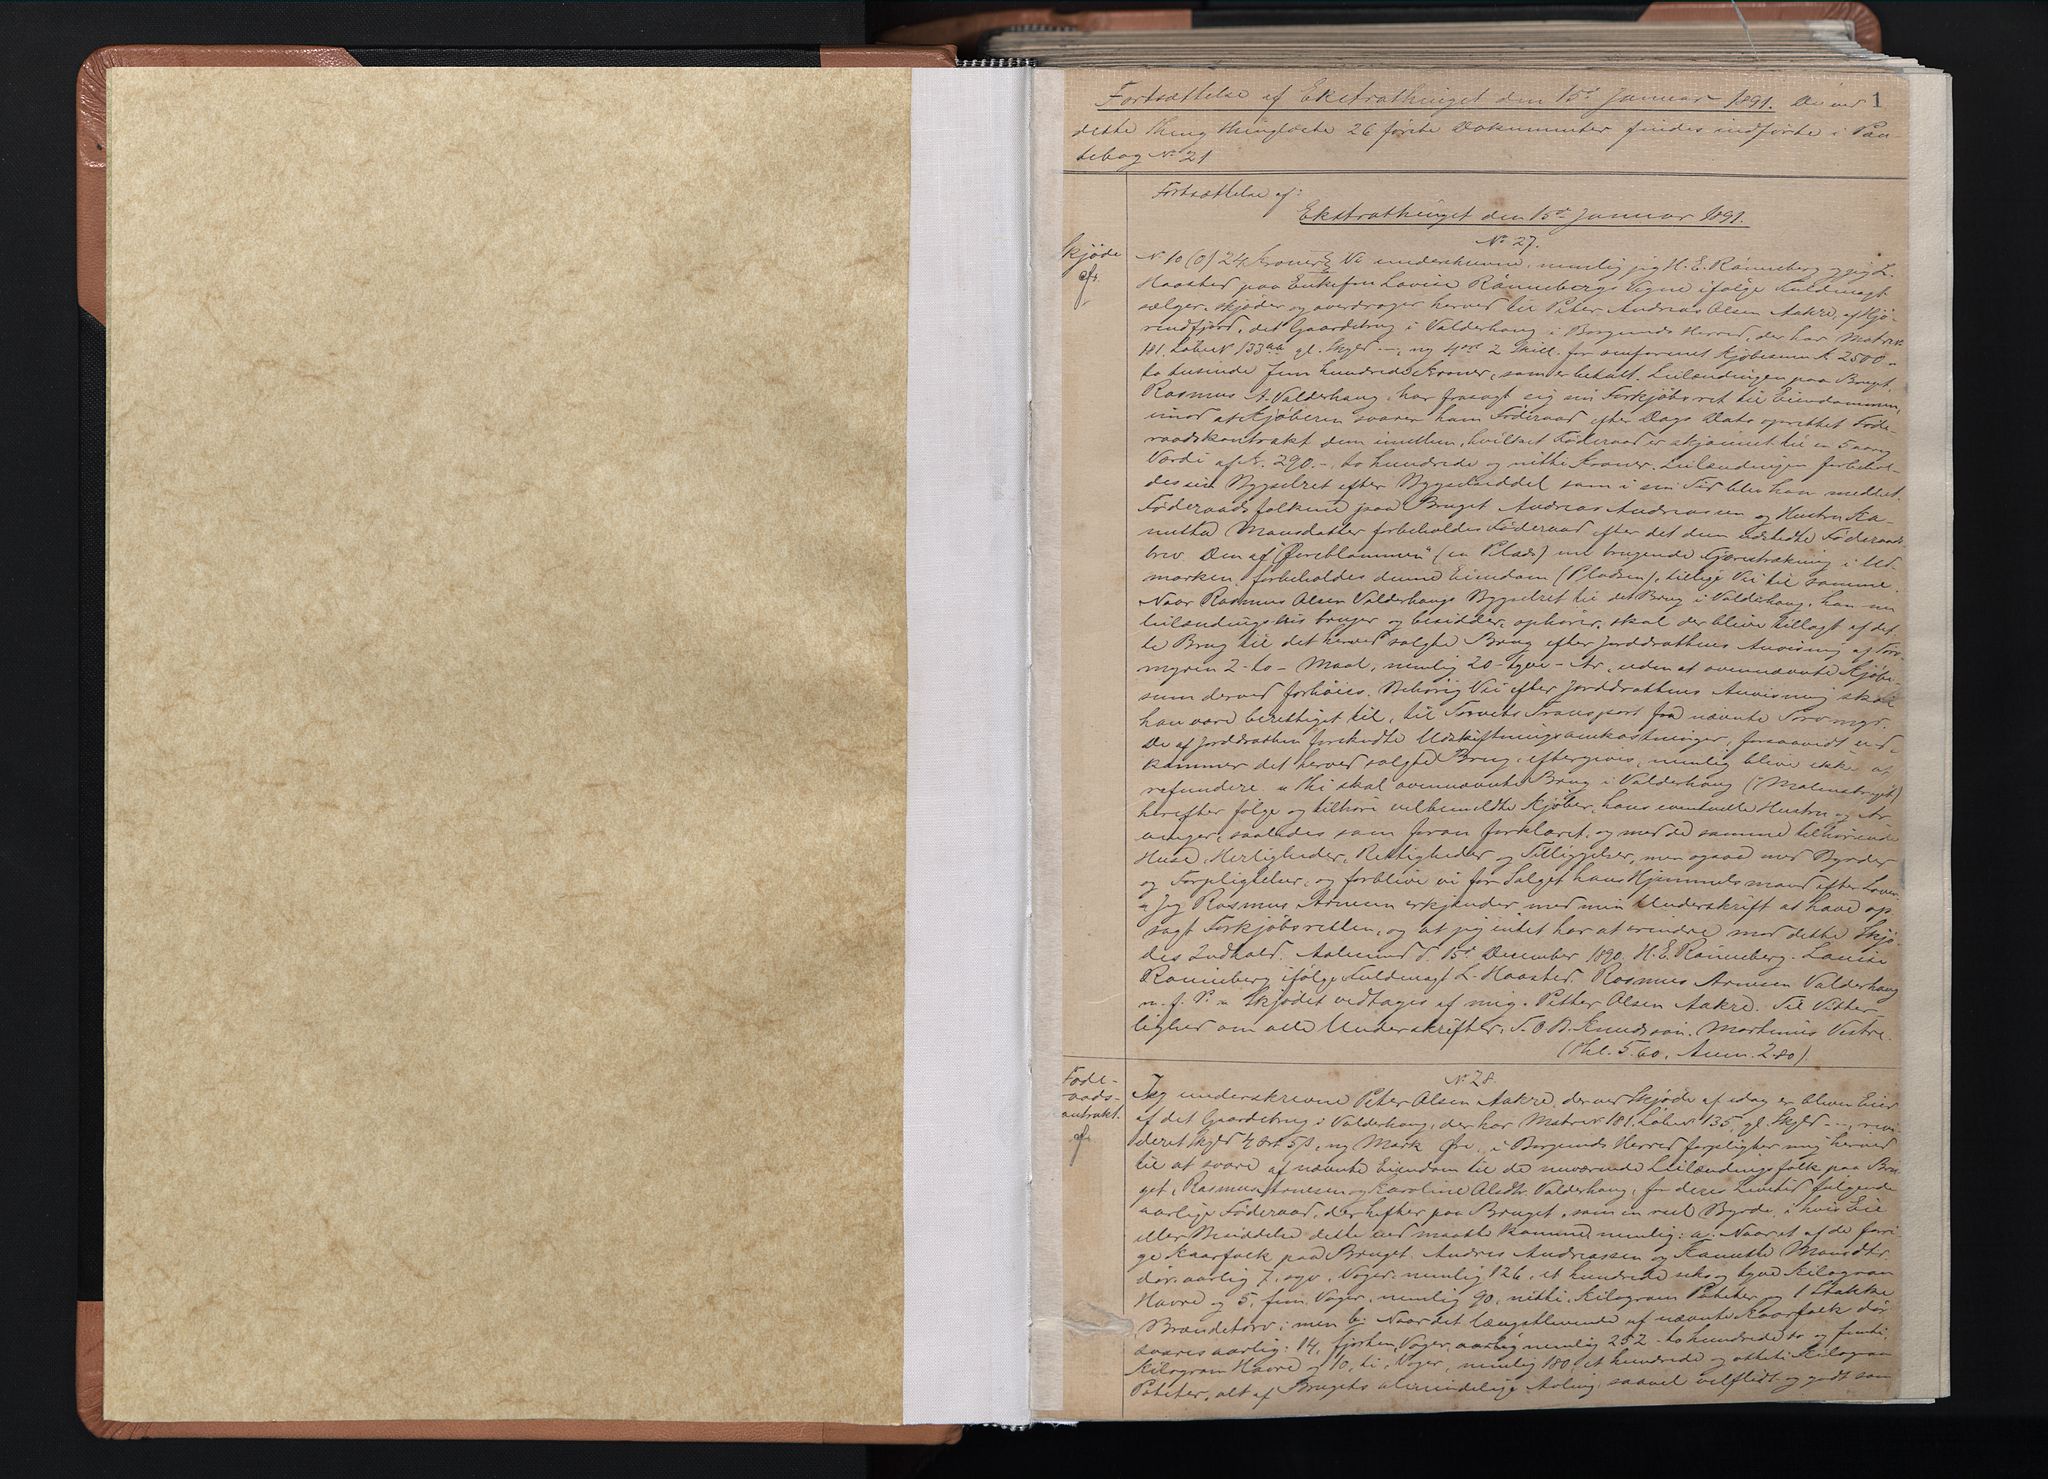 1
Fortsættelse af Ekstrathinget den 15de Januar 1891. De ved
dette Thing thinglæste 26 første Dokumenter findes indførte i Pan-
tebog No 21
Fortsættelse af:
Ekstrathinget den 15de Januar 1891.
No 27.
Skjøde
No 10 (0) 24 Kroner Vi underskrevne, nemlig jeg H. E. Rønneberg og jeg L.
Haasted paa Enkefru Lovise Rønnebergs Vegne ifølge Fuldmagt
sælger, skjøder og overdrager herved til Peter Andreas Olsen Aakre, af Hjø-
rendfjord, det Gaardsbrug i Valderhaug i Borgunds Herred, der har Matr. No
181. Løbe No 133aa gl. Skyld —, ny 4 ort 2 Skill. for omforenet Kjøbesum K. 2500 -
to tusinde fem hundrede Kroner, som er betalt. Leilændingen paa Bruget,
Rasmus A. Valderhaug, har frasagt sig sin Forkjøbsret til Eiendommen,
imod at Kjøberen svarer ham Føderaad efter Dags Dato oprettet Føde-
raadskontrakt dem imellem, hvilket Føderaad er skjønnet til en 5 aarig
Værdi af K. 290.-, to hundrede og nitti Kroner. Leilændingen forbehol-
des sin Bygselret efter Bygselseddel som i sin Tid blev ham meddelt.
Føderaadsfolkene paa Bruget Andreas Andreassen og Hustru Ka-
nutta Monsdatter forbeholdes Føderaad efter det dem udstedte Føderaads-
brev. Den af "Øreblommen" (en Plads) nu brugende Fjærestrækning i Ud-
marken, forbeholdes denne Eiendom (Pladsen), tillige Vei til samme.
Naar Rasmus Olsen Valderhaugs Bygselret til det Brug i Valderhaug, han nu
leilændingsvis bruger og besidder, ophører, skal der blive tillagt af det-
te Brug til det herved solgte Brug efter Jorddrottens Anvisning af Torv-
myren 2 - to - Maal, nemlig 20 - tyve - Ar, uden at ovennævnte Kjøbe-
sum derved forhøies. Behørig Vei efter Jorddrottens Anvisning skal
han være berettiget til, til Torvets Transport fra nævnte Torvmyr.
De af Jorddrotten forskudte Udskiftningsomkostninger, forsaavidt ved-
kommer det herved solgte Brug, eftergives, nemlig blive ikke at
refundere. Thi skal ovennævnte Brug i Valderhaug (Malenabruget)
herefter følge og tilhøre velbemeldte Kjøber, hans eventuelle Hustru og Ar-
vinger, saaledes som foran forklaret, og med de samme tilhørende
Huse, Herligheder, Rettigheder og Tilliggelser, men ogsaa med Byrder
og Forpligtelser, og forblive vi for Salget hans Hjemmelsmand efter Loven.
Jeg Rasmus Arnesen erkjender med min Underskrift at have op-
sagt Forkjøbsretten, og at jeg intet har at erindre mod dette Skjø-
des Indhold. Aalesund d. 15de December 1890. H. E. Rønneberg. Lovise
Rønneberg ifølge Fuldmagt L. Haasted. Rasmus Arnesen Valderhaug
m. f. P. Skjødet vedtages af mig. Petter Olsen Aakre. Til Vitter-
lighed om alle Underskrifter: T. O. B. Knudsøn. Martinus Vestre.
(Thl. 5.60, Anm. 2.80).
Føde-
raads-
kontrakt.
No 28.
Jeg underskrevne Peter Olsen Aakre, der ved Skjøde af idag er bleven Eier
af det Gaardsbrug i Valderhaug, der har Matr. No 181, Løbe No 135, gl. Skyld —, revi-
deret Skyld 4 Ort 5 ß, ny Mark Øre, i Borgunds Herred forpligter mig herved
til at svare af nævnte Eiendom til de nuværende Leilændingsfolk paa Bru-
get, Rasmus Arnesen og Karoline Olsdtr. Valderhaug, for deres Livstid følgende
aarlige Føderaad, der hefter paa Bruget, som en reel Byrde, i hvis Eie
eller Besiddelse dette end maatte komme, nemlig: a. Naar et af de forri-
ge Kaarfolk paa Bruget, Andres Andreassen og Kanutte Monsdtr.
dør, aarlig 7, syv, Voger, nemlig 126, et hundrede seks og tyve Kilogram
Havre og 5, fem, Voger, nemlig 90, nitti, Kilogram Poteter og 1 Stakke
Brændetorv; men b. Naar det længstlevende af nævnte Kaarfolk dør
svares aarlig: 14, fjorten, Voger, aarlig nemlig 252 - to hundrede to og femti,
Kilogram Havre og 10, ti, Voger, nemlig 180, et hundrede og otteti Kilogram
Poteter, alt af Brugets almindelige Avling, saavel velflidt og godt som